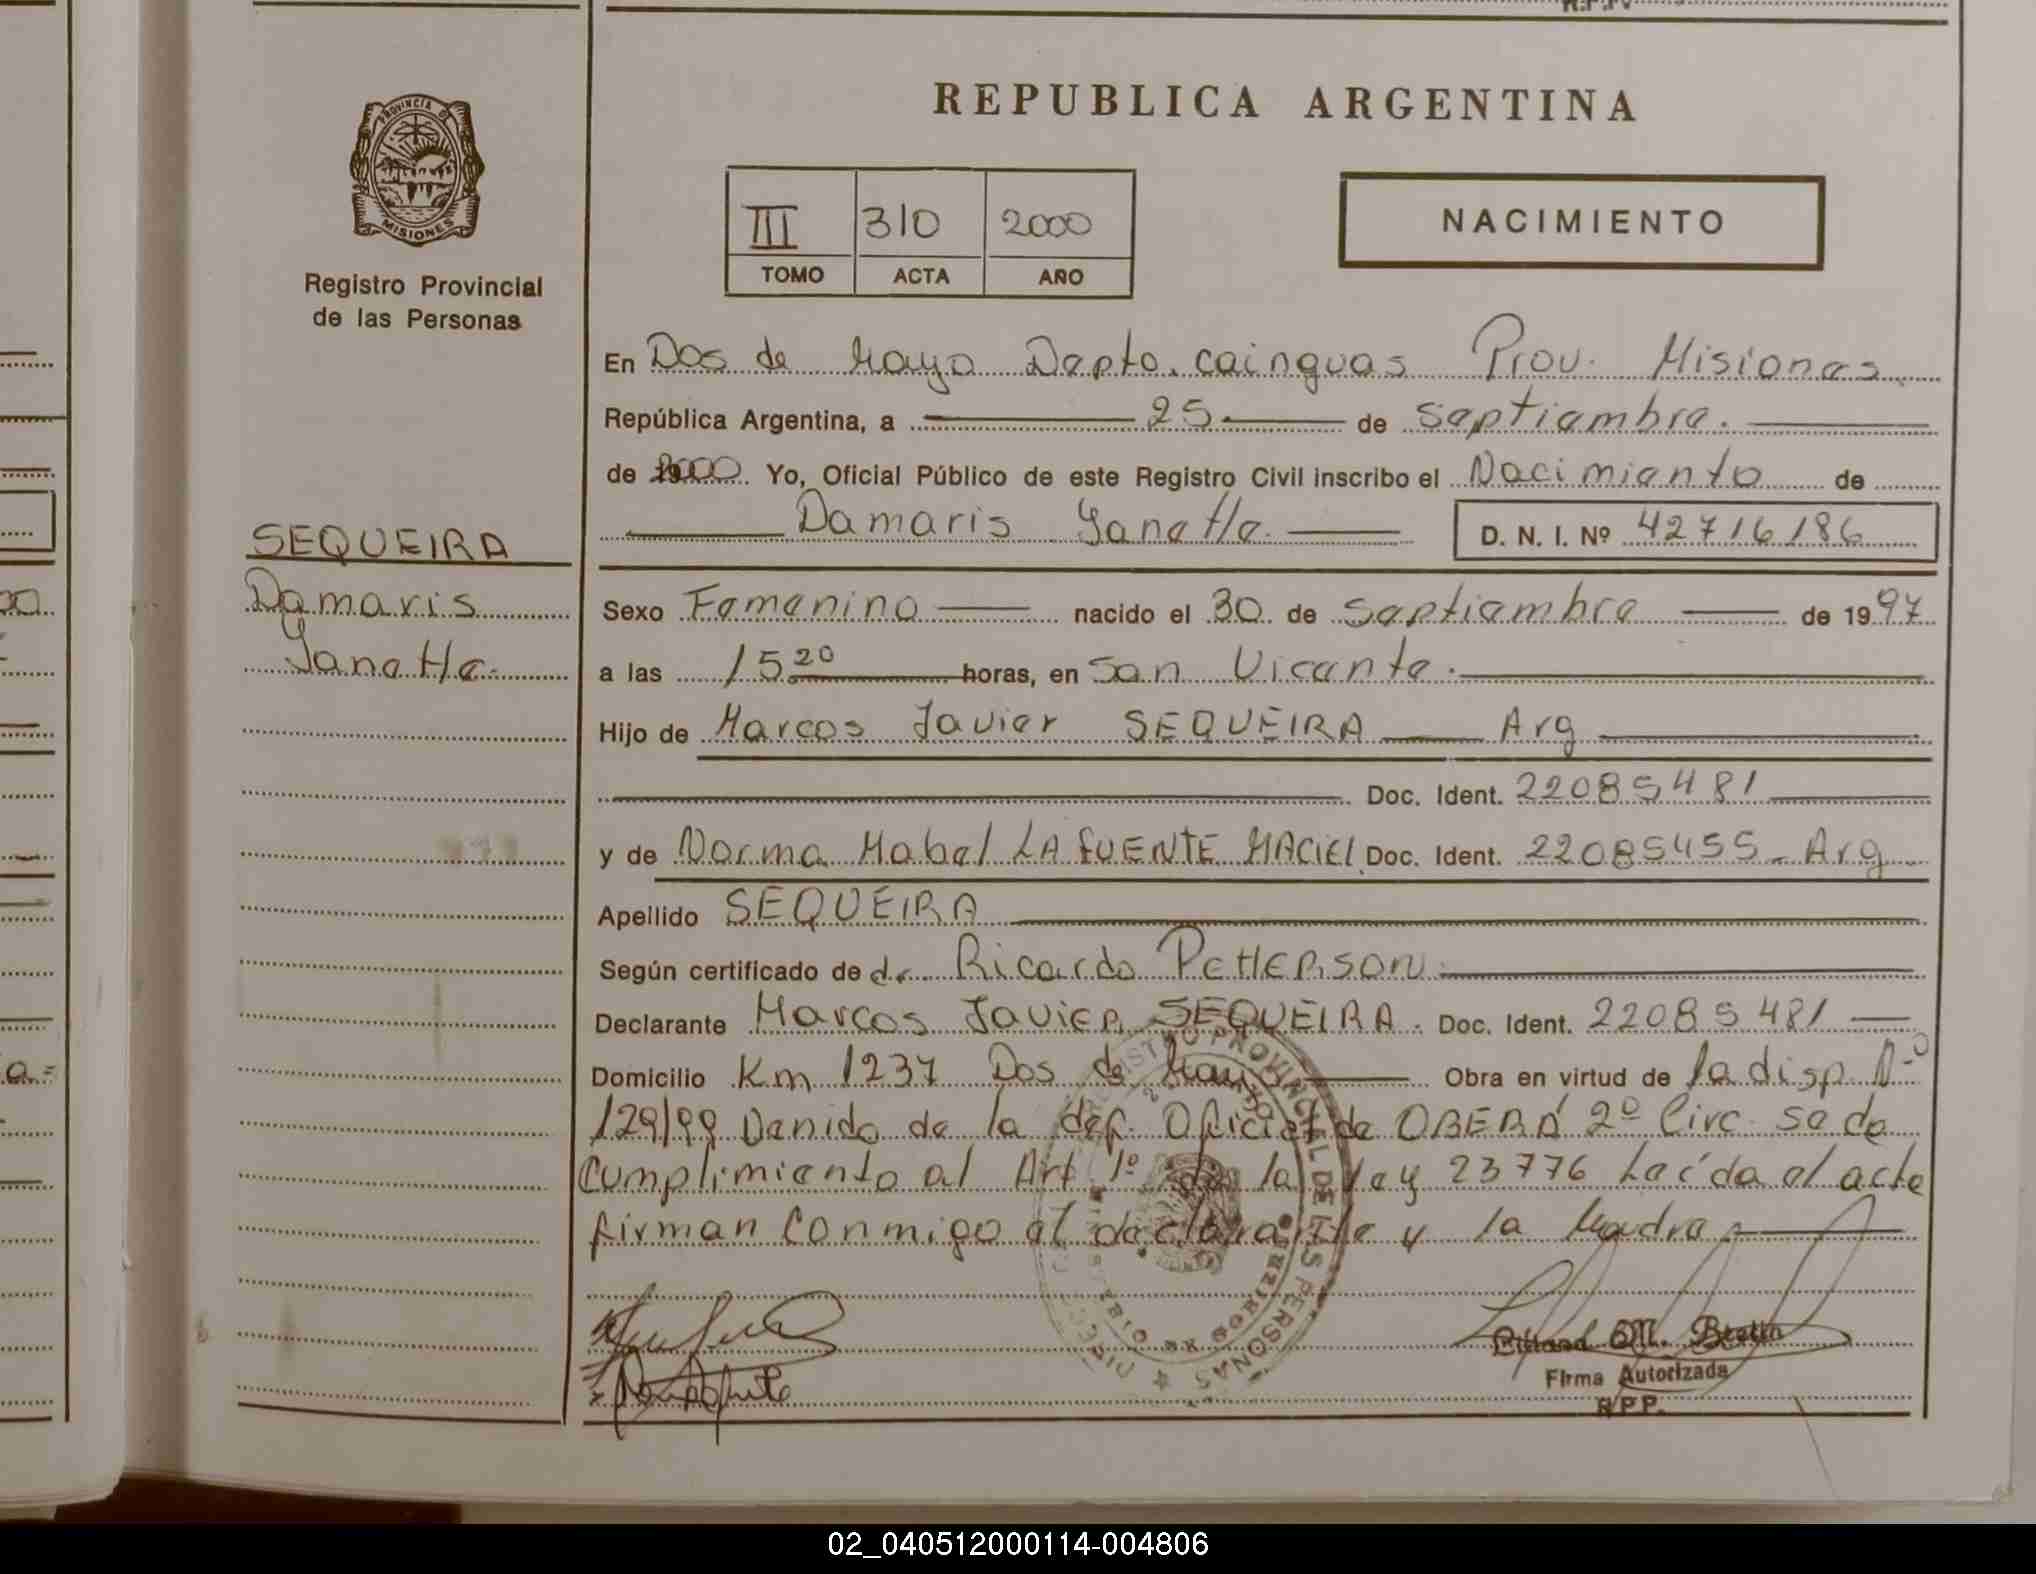 PROVINCIA DE
MISIONES
Registro Provincial
de las Personas
SEQUEIRA
Damaris
Yanette.
REPUBLICA ARGENTINA
III 310 2000
TOMO ACTA AÑO
NACIMIENTO
En Dos de Mayo Depto. cainguas Prov. Misiones
República Argentina, a 25 de septiembre.
de 2000 Yo, Oficial Público de este Registro Civil inscribo el Nacimiento de
Damaris Yanette. D. N. I. Nº 42716186
Sexo Femenino nacido el 30 de septiembre de 1997
a las 15.20 horas, en San Vicente.
Hijo de Marcos Javier SEQUEIRA Arg
Doc. Ident. 22085481
y de Norma Mabel LA FUENTE MACIEL Doc. Ident. 22085455 - Arg
Apellido SEQUEIRA
Según certificado de dr. Ricardo PETTERSON.
Declarante Marcos Javier SEQUEIRA. Doc. Ident. 22085481
Domicilio Km 1237 Dos de Mayo Obra en virtud de la disp. Nº
129/99 Venido de la def. Oficial de OBERÁ 2º Circ. se da
cumplimiento al Art 1º de la ley 23776 Leída el acta
firman conmigo el declarante y la Madre.
M. Bretin
Firma Autorizada
R.P.P.
02_040512000114-004806